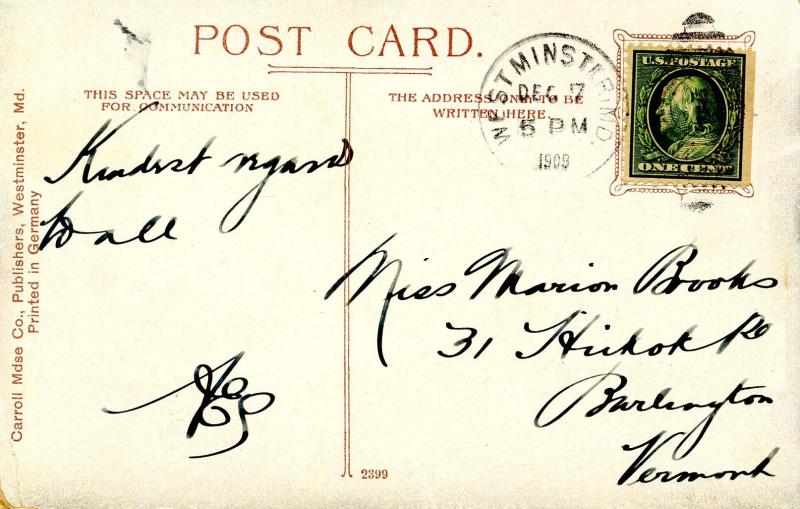 POST CARD.
THIS SPACE MAY BE USED
FOR COMMUNICATION
THE ADDRESS ONLY TO BE
WRITTEN HERE
WESTMINSTER, MD.
DEC 7
5 PM
1909
U.S. POSTAGE
ONE CENT
Kindest regards
to all
Miss Marion Brooks
31 Hickok Pl
Burlington
Vermont
2399
Carroll Mdse Co., Publishers, Westminster, Md.
Printed in Germany